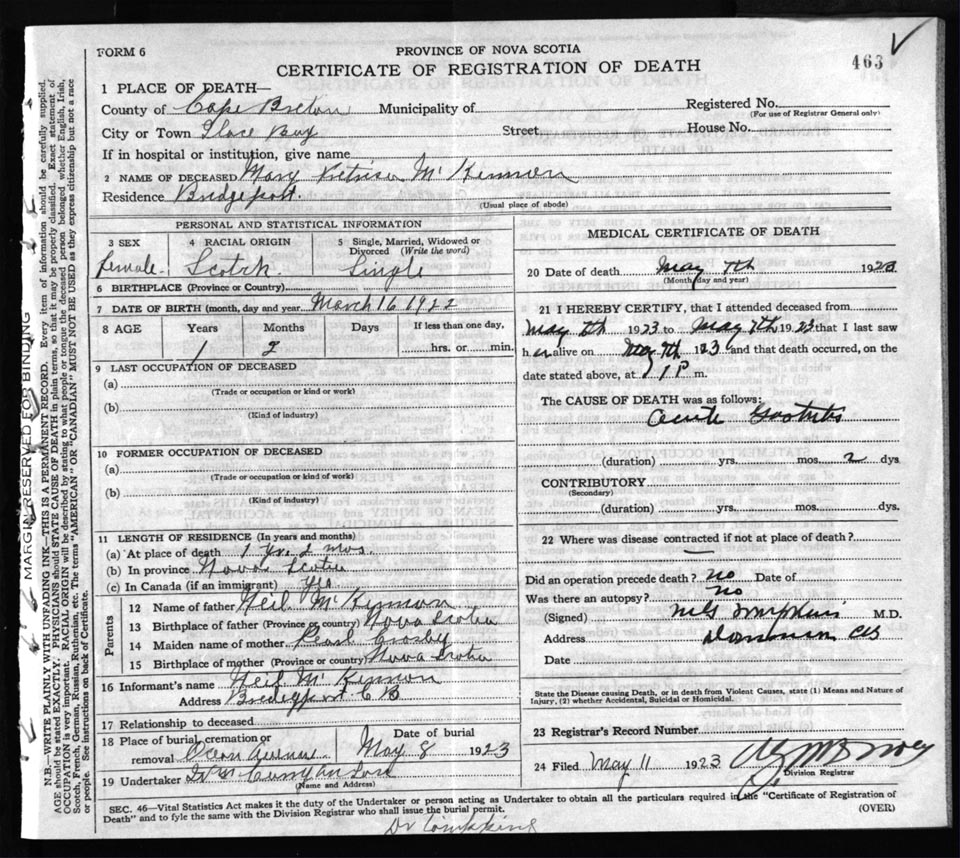 FORM 6
PROVINCE OF NOVA SCOTIA
CERTIFICATE OF REGISTRATION OF DEATH
463
1 PLACE OF DEATH—
County of Cape Breton Municipality of Registered No.
(For use of Registrar General only)
City or Town Glace Bay Street House No.
If in hospital or institution, give name
2 NAME OF DECEASED Mary McKinnon
Residence Bridgeport.
(Usual place of abode)
PERSONAL AND STATISTICAL INFORMATION
3 SEX
Female
4 RACIAL ORIGIN
Scotch
5 Single, Married, Widowed or Divorced (Write the word)
Single
6 BIRTHPLACE (Province or Country)
7 DATE OF BIRTH (month, day and year March 16 1922
8 AGE Years Months Days If less than one day,
1 2 hrs. or min.
9 LAST OCCUPATION OF DECEASED
(a)
(Trade or occupation or kind or work)
(b)
(Kind of industry)
10 FORMER OCCUPATION OF DECEASED
(a)
(Trade or occupation or kind or work)
(b)
(Kind of industry)
11 LENGTH OF RESIDENCE (In years and months)
(a) At place of death 1 Yr. 2 mos.
(b) In province Nova Scotia
(c) In Canada (if an immigrant)
Parents
12 Name of father Neil McKinnon
13 Birthplace of father (Province or country) Nova Scotia
14 Maiden name of mother Pearl Crosby
15 Birthplace of mother (Province or country) Nova Scotia
16 Informant's name Neil McKinnon
Address Bridgeport C B
17 Relationship to deceased
18 Place of burial, cremation or removal Date of burial
May 8 1923
19 Undertaker
(Name and Address)
MEDICAL CERTIFICATE OF DEATH
20 Date of death May 7th 1923
(Month day and year)
21 I HEREBY CERTIFY, that I attended deceased from
May 7th 1923 to May 7th 1923 that I last saw
h er alive on May 7th 1923 and that death occurred, on the
date stated above, at 1 P m.
The CAUSE OF DEATH was as follows:
Acute
(duration) yrs. mos. 2 dys
CONTRIBUTORY
(Secondary)
(duration) yrs. mos. dys.
22 Where was disease contracted if not at place of death?
Did an operation precede death? no Date of
Was there an autopsy? no
(Signed) M.D.
Address
Date
State the Disease causing Death, or in death from Violent Causes, state (1) Means and Nature of
Injury, (2) whether Accidental, Suicidal or Homicidal.
23 Registrar's Record Number
24 Filed May 11 1923
Division Registrar
SEC. 46—Vital Statistics Act makes it the duty of the Undertaker or person acting as Undertaker to obtain all the particulars required in the "Certificate of Registration of
Death" and to fyle the same with the Division Registrar who shall issue the burial permit. (OVER)
MARGIN RESERVED FOR BINDING
N.B.—WRITE PLAINLY WITH UNFADING INK—THIS IS A PERMANENT RECORD. Every item of information should be carefully supplied.
AGE should be stated EXACTLY. PHYSICIANS should STATE CAUSE OF DEATH in plain terms, so that it may be properly classified. Exact statement of
OCCUPATION is very important. RACIAL ORIGIN will be described by stating to what people or tongue the deceased person belonged whether English, Irish,
Scotch, French, German, Russian, Ruthenian, etc. The terms "AMERICAN" or "CANADIAN" MUST NOT BE USED as they express citizenship but not a race
or people. See instructions on back of Certificate.